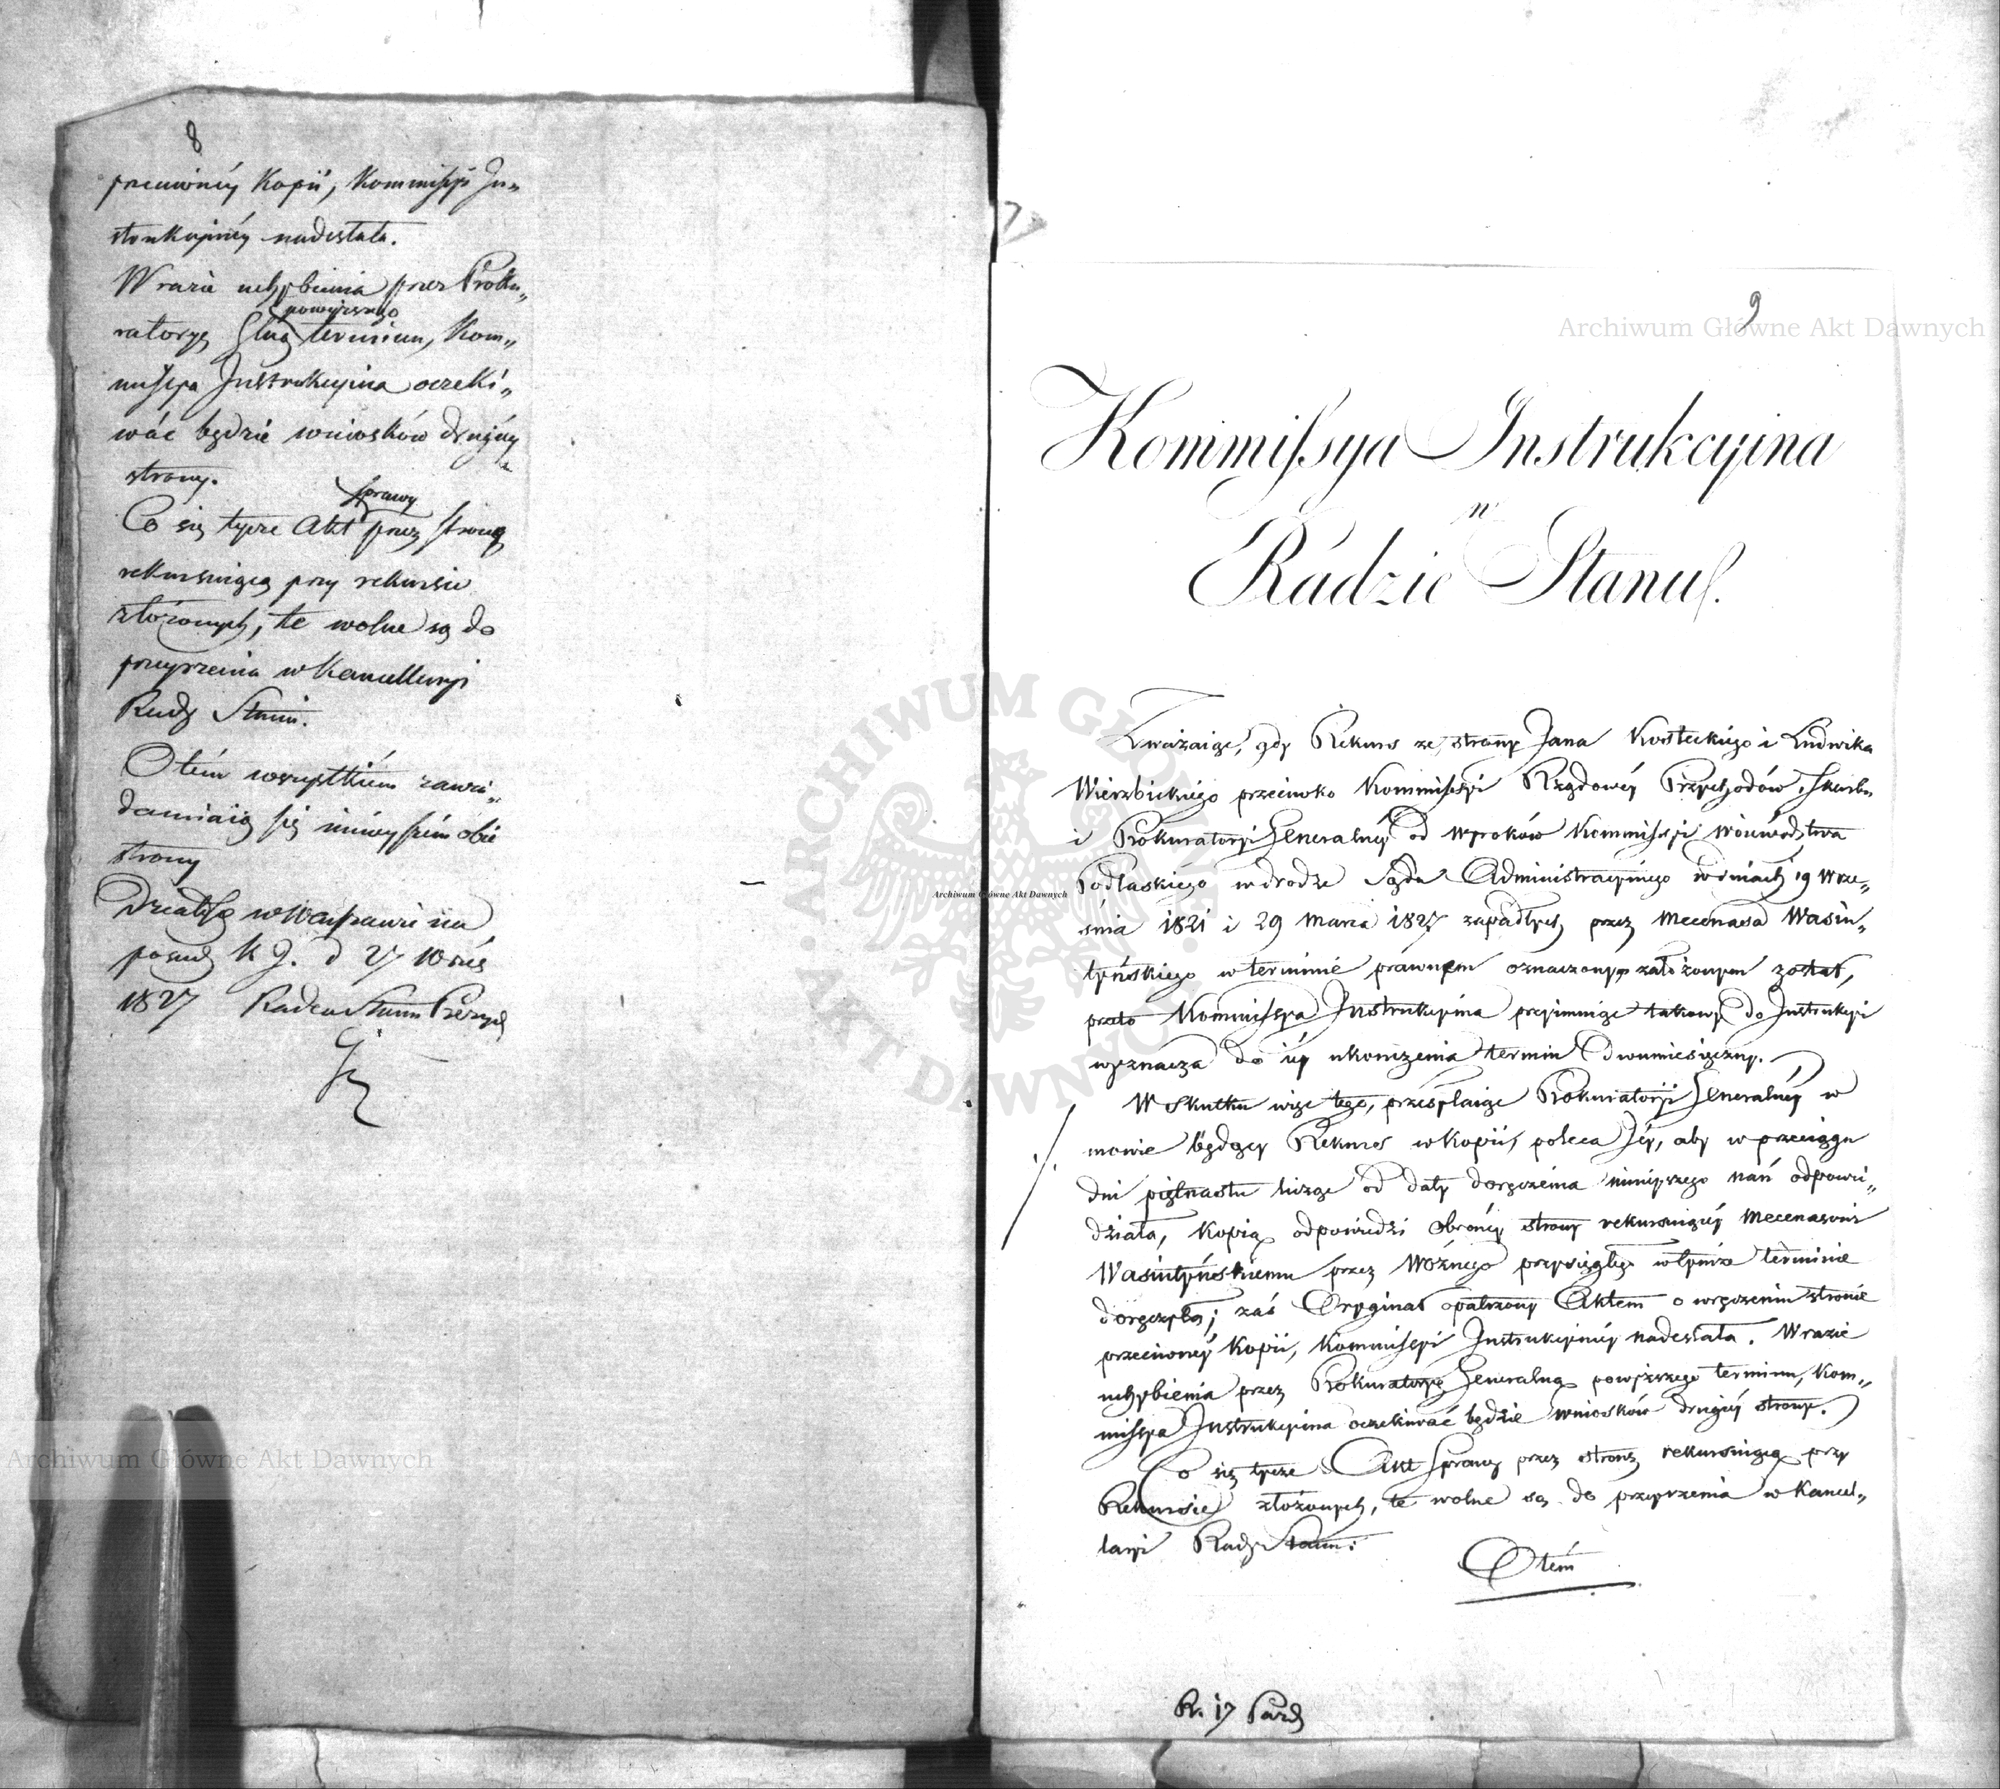 8
przeciwnéy Kopii, Kommissyi In„
strukcyinéy nadesłała.
W razie uchybienia przez Proku„
powyższego
ratoryą Glną terminu, Kom„
missya Instrukcyina oczeki„
wać będzie wniosków drugiéy
strony.
sprawy
Co się tycze Akt przez stronę
rekursuiącą przy rekursie
złożonych, te wolne są do
przeyrzenia w Kancellaryi
Rady Stanu.
O tém wszystkiém zawia„
damiaią się ninieyszém obie
strony
Działo się w Warszawie na
posied. K. J. d 27 Wrześ
1827 Radca Stanu Prezyd
9
Kommissya Instrukcyina
w
Radzie Stanu.
Zważaiąc, gdy Rekurs ze strony Jana Kosteckiego i Ludwika
Wierzbickiego przeciwko Kommissyi Rządowéy Przychodów i Skarbu
i Prokuratoryi Generalnéy od Wyroków Kommissyi Woiewództwa
Podlaskiego w drodze Sądu Administracyinego w dniach 19 Wrze„
śnia 1821 i 29 Marca 1827 zapadłych, przez Mecenasa Wasiu„
tyńskiego w terminie prawnym oznaczonym założonym został,
przeto Kommissya Instrukcyina przyimuiąc takowy do Instrukcyi
wyznacza do iéy ukończenia termin dwumiesięczny.
W skutku więc tego, przesyłaiąc Prokuratoryi Generalnéy w
mowie będący Rekurs w kopii, poleca Jéy, aby w przeciągu
dni piętnastu licząc od daty doręczenia ninieyszego nań odpowie„
działa, kopią odpowiedzi Obrońcy strony rekursuiącéy Mecenasowi
Wasiutyńskiemu przez Woźnego przysięgłego w tymże terminie
doręczyła; zaś Oryginał opatrzony Aktem o wręczeniu stronie
przeciwnéy kopii, Kommissyi Instrukcyinéy nadesłała. W razie
uchybienia przez Prokuratoryę Generalną powyższego terminu, Kom„
missya Instrukcyina oczekiwać będzie wniosków drugiéy strony.
Co się tycze Akt Sprawy przez stronę rekursuiącą przy
Rekursie złożonych, te wolne są do przeyrzenia w Kancel„
laryi Rady Stanu.
O tém
R. 17 Paźd
Archiwum Główne Akt Dawnych
Archiwum Główne Akt Dawnych
Archiwum Główne Akt Dawnych
ARCHIWUM GŁÓWNE AKT DAWNYCH